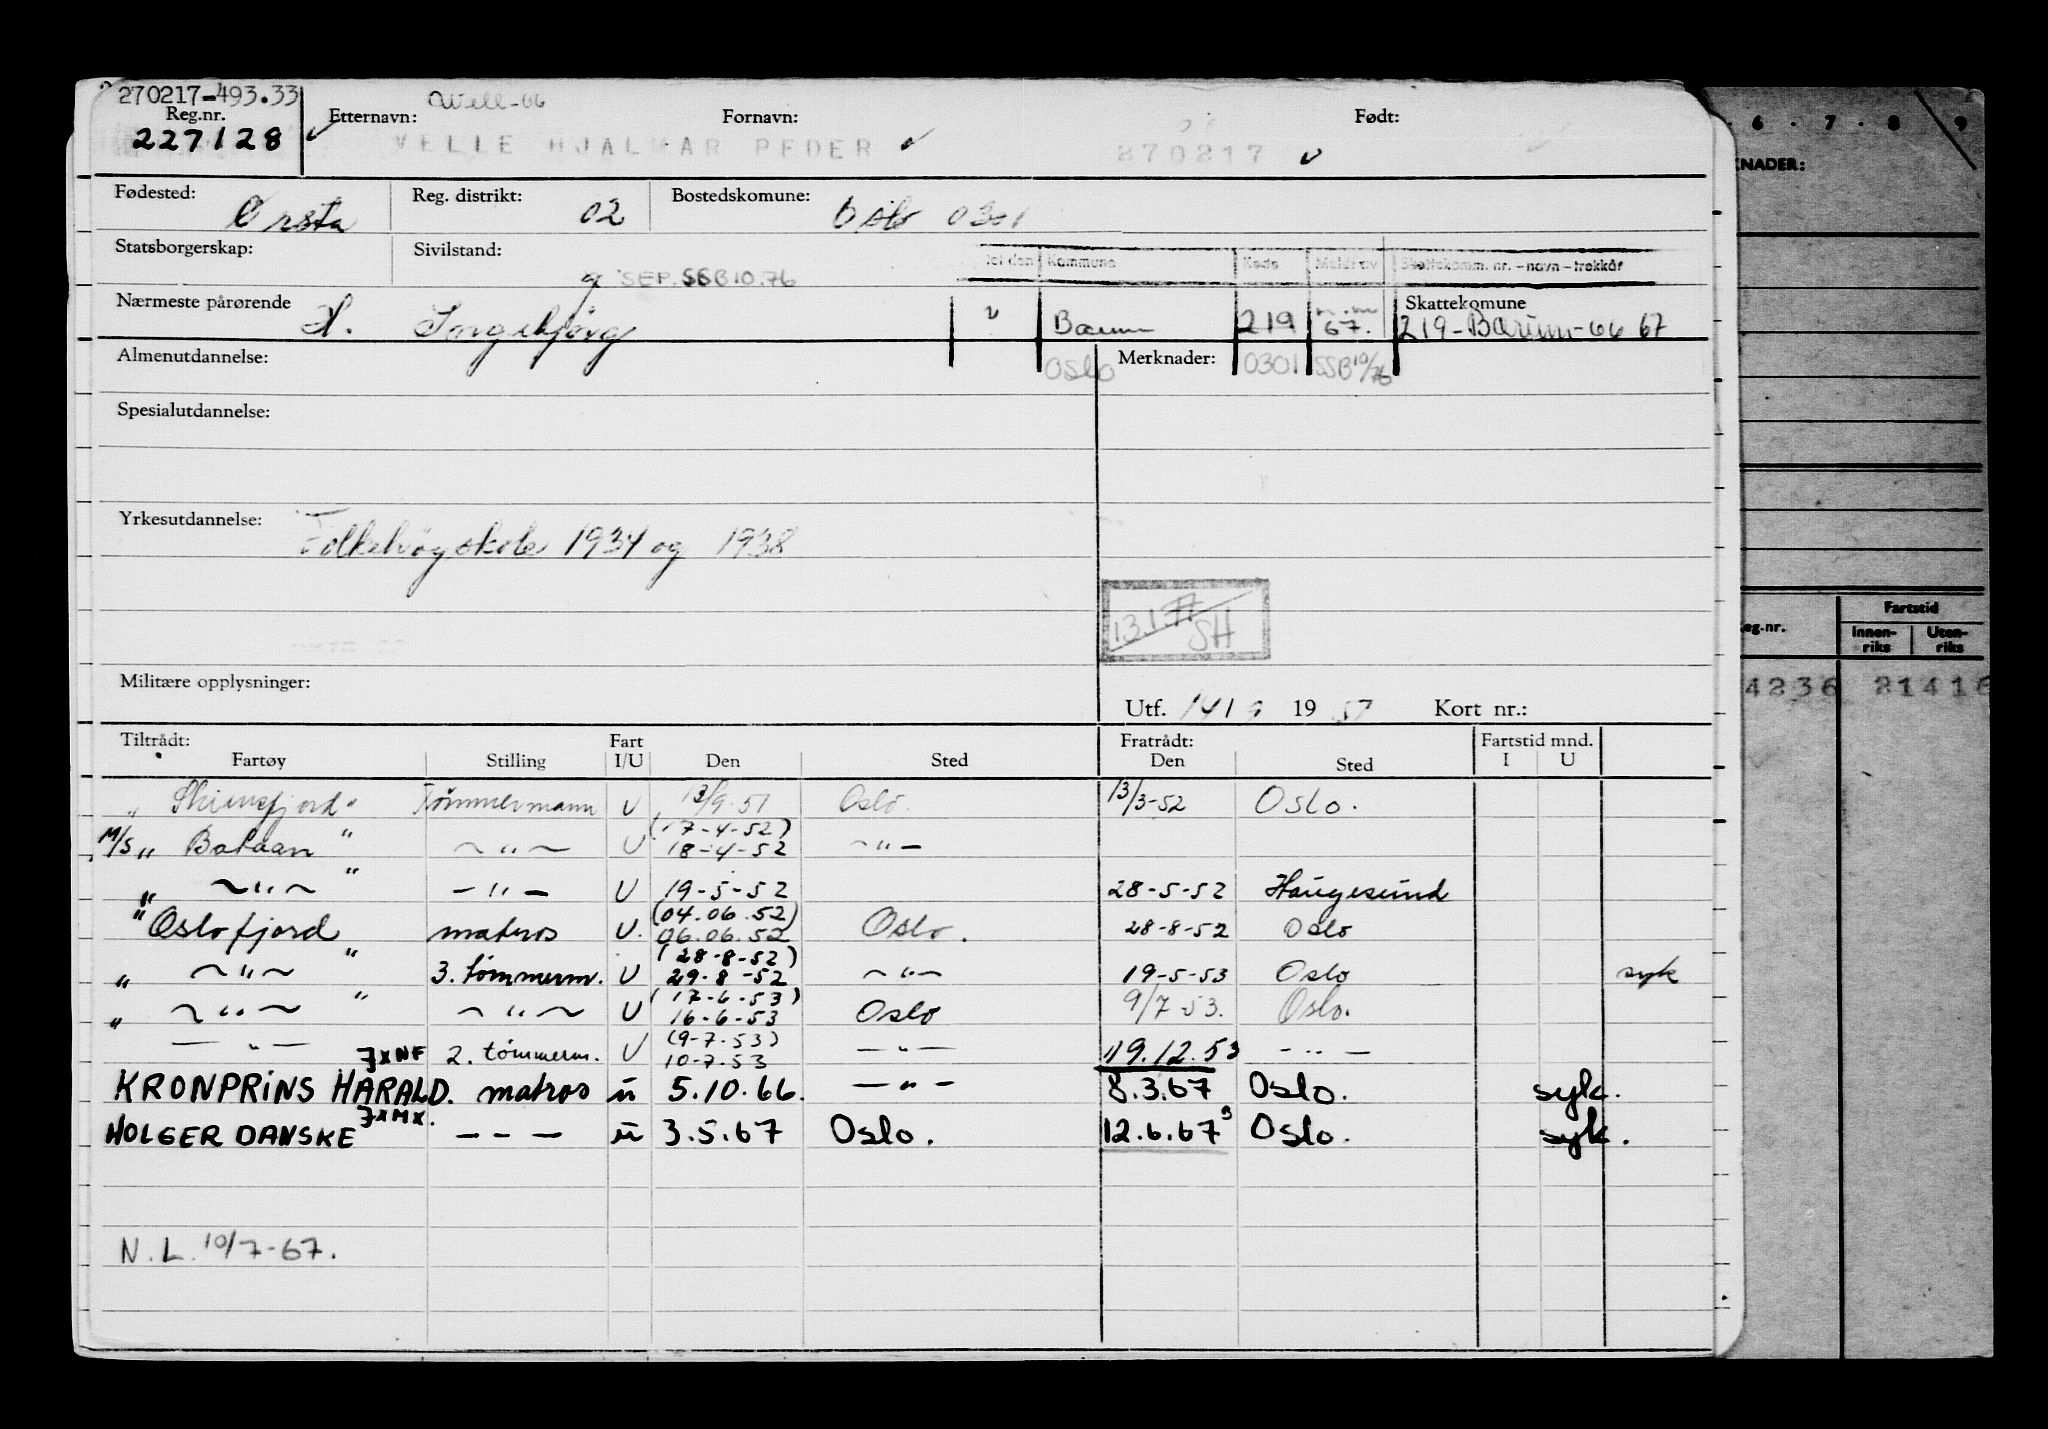 270217-493.33
Reg.nr.
227128
Etternavn:
VELLE HJALMAR PEDER
Fornavn:
Født:
270217
Fødested:
Ørsta
Reg. distrikt:
02
Bostedskomune:
Oslo 0301
Statsborgerskap:
Sivilstand:
g SEP. SSB 10.76
Kommune Kode Meldt av Skattekomm. nr. - navn - trekkår
Nærmeste pårørende
H. Ingebjørg
Bærum 219 67.
Skattekomune
219-Bærum-66 67
Almenutdannelse:
Oslo
Merknader:
0301 SSB 10/76
Spesialutdannelse:
Yrkesutdannelse:
Folkehøgskole 1934 og 1938
13.1.77
SH
Militære opplysninger:
Utf. 14/9 1957 Kort nr.:
Tiltrådt: Fart Fratrådt: Fartstid mnd.
Fartøy Stilling I/U Den Sted Den Sted I U
" Skiensfjord " Tømmermann U 13/9.51 Oslo. 13/3-52 Oslo.
(17-4-52)
M/S " Bataan " ~ " ~ U 18-4-52 ~ " -
" ~ " ~ " - " - U 19-5-52 28-5-52 Haugesund
(04.06.52)
" Oslofjord " matros U. 06.06.52 Oslo. 28-8-52 Oslo
(28-8-52)
" ~ " ~ 3. tømmerm. U 29-8-52 ~ " ~ 19-5-53 Oslo syk
(17-6-53)
" ~ " ~ " ~ " ~ U 16-6-53 Oslo 9/7-53. Oslo.
(9-7.53)
— " — 2. tømmerm. U 10-7.53 — " — 19.12.53 — " —
JXNF
KRONPRINS HARALD. matros u 5.10.66. — " — 8.3.67 Oslo. syk.
JXMX.
HOLGER DANSKE — — — u 3.5.67 Oslo. 12.6.67 Oslo. syk.
N.L. 10/7-67.
6 . 7 . 8 . 9
Fartstid
Innen-
riks
Uten-
riks
4236 21416